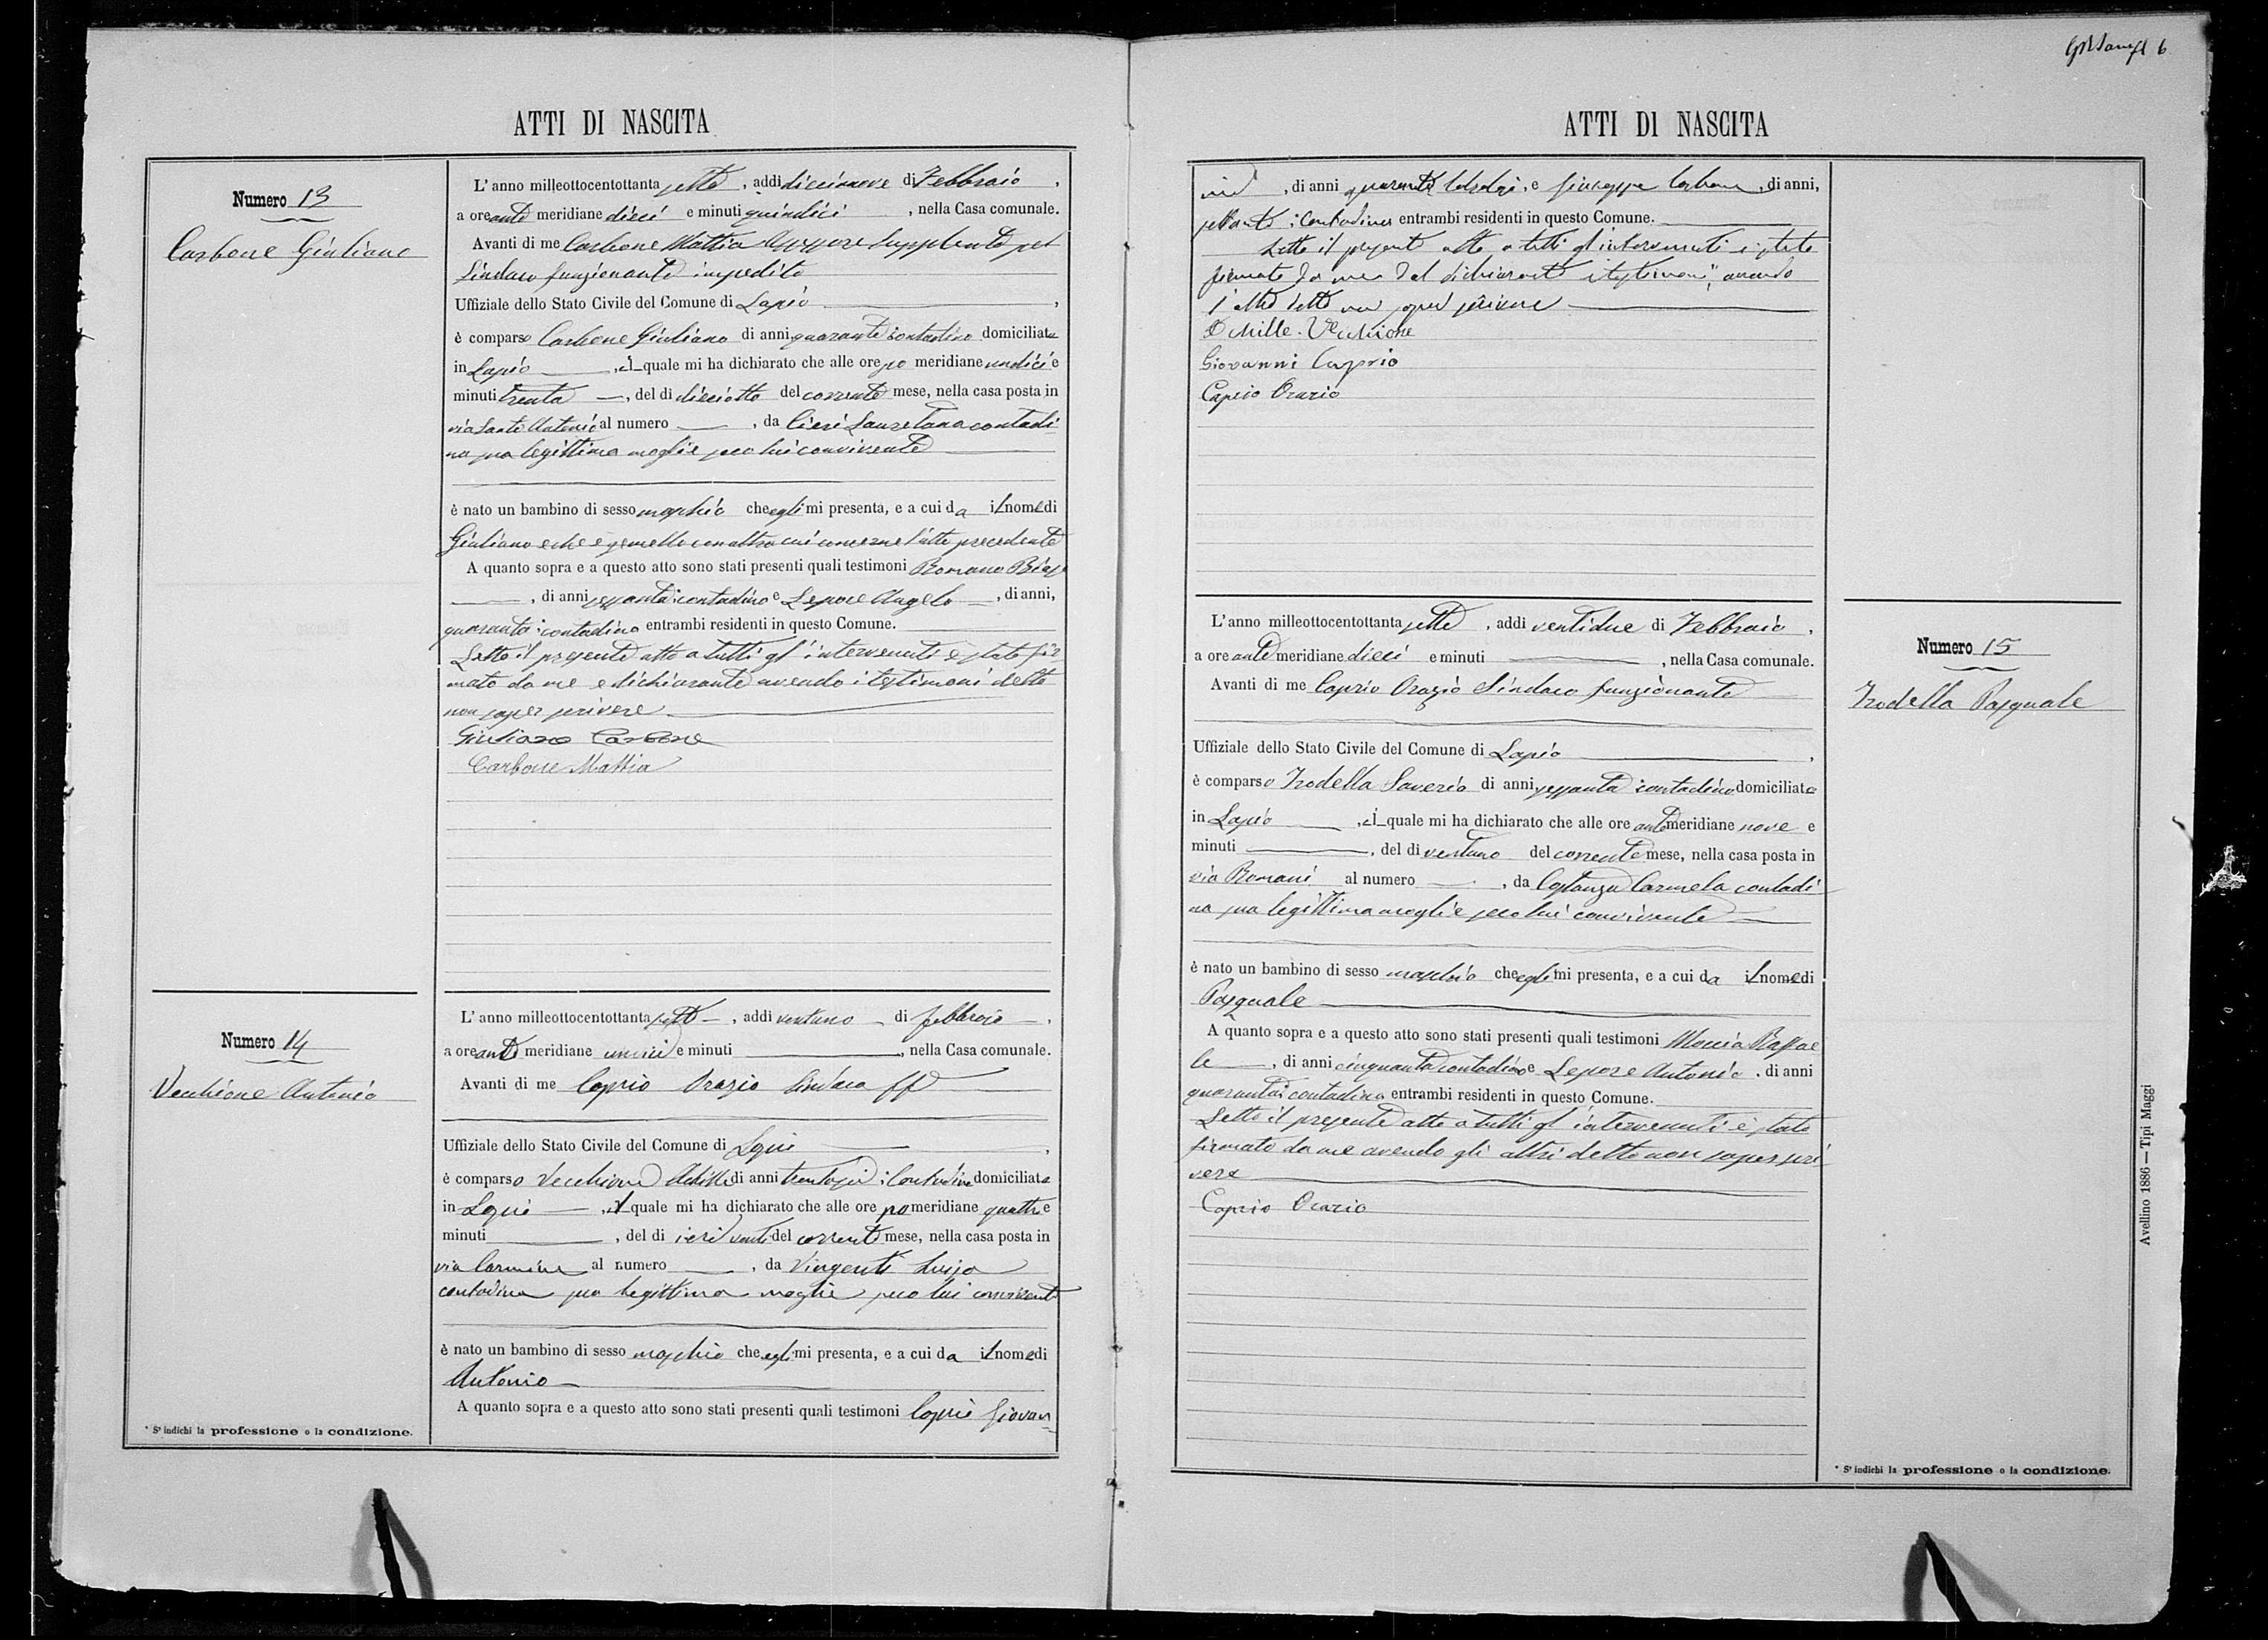 6
ATTI DI NASCITA
Numero 13
Carbone Giuliano
L'anno milleottocentottanta sette, addi diecinove di Febbraio,
a ore ante meridiane dieci e minuti quindici, nella Casa comunale.
Avanti di me Carbone Mattia Assessore Supplente pel
Sindaco funzionante impedito
Uffiziale dello Stato Civile del Comune di Lapio,
è comparso Carbone Giuliano di anni quaranta contadino domiciliato
in Lapio, il quale mi ha dichiarato che alle ore po meridiane undici e
minuti trenta, del di dieciotto del corrente mese, nella casa posta in
via Santo Antonio al numero, da Cieri Lauretana contadi
na sua legittima moglie seco lui convivente
è nato un bambino di sesso maschio che egli mi presenta, e a cui da il nome di
Giuliano e che è gemello con altro cui concerne l'atto precedente
A quanto sopra e a questo atto sono stati presenti quali testimoni Romano Biase
, di anni sessanta contadino e Lepore Angelo, di anni,
quaranta contadino entrambi residenti in questo Comune.
Letto il presente atto a tutti gl'intervenuti è stato fir
mato da me e dichiarante avendo i testimoni detto
non saper scrivere
Giuliano Carbone
Carbone Mattia
Numero 14
Vecchione Antonio
L'anno milleottocentottanta sette, addi ventuno di febbraio,
a ore ante meridiane undici e minuti, nella Casa comunale.
Avanti di me Caprio Orazio Sindaco ff
Uffiziale dello Stato Civile del Comune di Lapio,
è comparso Vecchione Achille di anni trentasei Contadino domiciliato
in Lapio, il quale mi ha dichiarato che alle ore po meridiane quattro e
minuti, del di ieri venti del corrente mese, nella casa posta in
via Carmine al numero, da Vingenti Luisa
contadina sua legittima moglie seco lui convivente
è nato un bambino di sesso maschio che egli mi presenta, e a cui da il nome di
Antonio
A quanto sopra e a questo atto sono stati presenti quali testimoni Caprio Giovan
* S'indichi la professione o la condizione.
ATTI DI NASCITA
, di anni quaranta, e Giuseppe Carbone, di anni,
settanta Contadino entrambi residenti in questo Comune.
Letto il presente atto a tutti gl'intervenuti è stato
firmato da me dal dichiarante testimoni, avendo
l'altro detto non saper scrivere
Achille Vecchione
Giovanni Caprio
Caprio Orazio
Numero 15
Trodella Pasquale
L'anno milleottocentottanta sette, addi ventidue di Febbraio,
a ore ante meridiane dieci e minuti, nella Casa comunale.
Avanti di me Caprio Orazio Sindaco funzionante
Uffiziale dello Stato Civile del Comune di Lapio,
è comparso Trodella Saverio di anni sessanta contadino domiciliato
in Lapio, il quale mi ha dichiarato che alle ore ante meridiane nove e
minuti, del di ventuno del corrente mese, nella casa posta in
via Romani al numero, da Costanza Carmela contadi
na sua legittima moglie seco lui convivente
è nato un bambino di sesso maschio che egli mi presenta, e a cui da il nome di
Pasquale
A quanto sopra e a questo atto sono stati presenti quali testimoni Moccia Raffae
le, di anni cinquanta contadino e Lepore Antonio, di anni
quaranta contadino entrambi residenti in questo Comune.
Letto il presente atto a tutti gl'intervenuti è stato
firmato da me avendo gli altri detto non saper scri
vere
Caprio Orazio
* S'indichi la professione o la condizione.
Avellino 1886 — Tipi Maggi